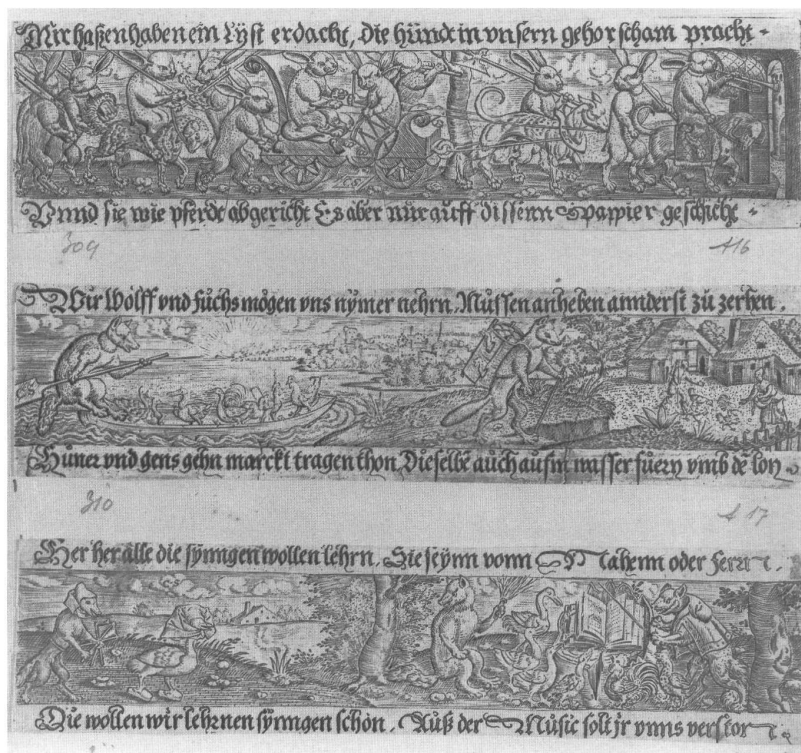 Mir haßen haben ein lÿst erdacht, die hündt in vnsern gehorscham pracht
Vnnd sie wie pferdt abgericht Es aber nur auff dissenn pappier geschicht
309 A16
Wir Wolff vnd fuchs mögen vns nÿmer nehrn, Müssen anheben annderst zu zerhen.
Hüner vnd gens gehn marckt tragen thon, Dieselbē auch aufm wasser fuern vmb dē lon
310 A17
Her her alle die sÿnngen wollen lehrn, Sie seÿnn vonn Nahenn oder Ferrn.
Die wollen wir lehrnen sÿnngen schön. Auß der Music solt jr vnns